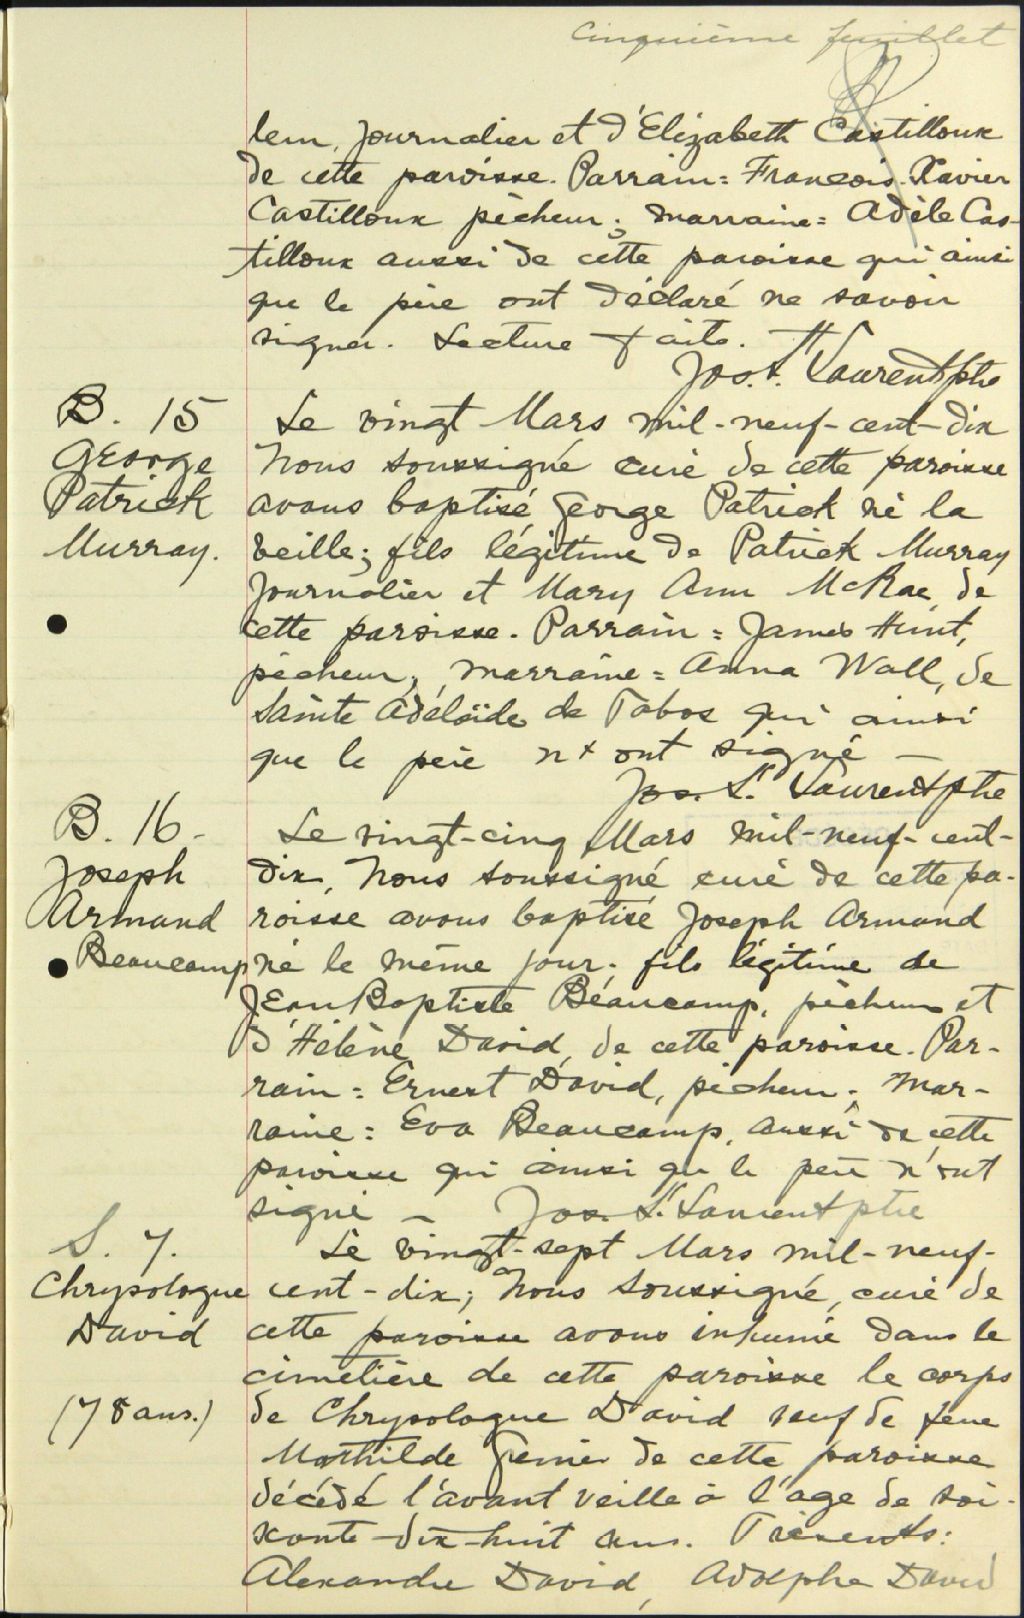 Cinquième feuillet
lem, journalier et d'Elizabeth Castilloux
de cette paroisse. Parrain = François-Xavier
Castilloux pêcheur; marraine = Adèle Cas-
tilloux aussi de cette paroisse qui ainsi
que le père ont déclaré ne savoir
signer. Lecture faite.
Jos. St Laurent ptre
B. 15
George
Patrick
Murray.
Le vingt Mars mil-neuf-cent-dix
Nous soussigné curé de cette paroisse
avons baptisé George Patrick né la
veille; fils légitime de Patrick Murray
journalier et Mary Ann McRae, de
cette paroisse. Parrain = James Hunt,
pêcheur; marraine = Anna Wall, de
Sainte Adélaïde de Pabos qui ainsi
que le père n + ont signé –
Jos. St Laurent ptre
B. 16 -
Joseph
Armand
Beaucamp
Le vingt-cinq Mars mil-neuf-cent-
dix, Nous soussigné curé de cette pa-
roisse avons baptisé Joseph Armand
né le même jour; fils légitime de
Jean Baptiste Beaucamp, pêcheur et
d'Hélène David, de cette paroisse. Par-
rain = Ernest David, pêcheur; Mar-
raine = Eva Beaucamp, aussi de cette
paroisse qui ainsi que le père n'ont
signé – Jos. St Laurent ptre
S. 7.
Chrysologue
David
(78 ans.)
Le vingt-sept Mars mil-neuf-
cent-dix; Nous soussigné, curé de
cette paroisse avons inhumé dans le
cimetière de cette paroisse le corps
de Chrysologue David veuf de feue
Mathilde de cette paroisse
décédé l'avant veille à l'age de soi-
xante-dix-huit ans. Présents:
Alexandre David, Adolphe David